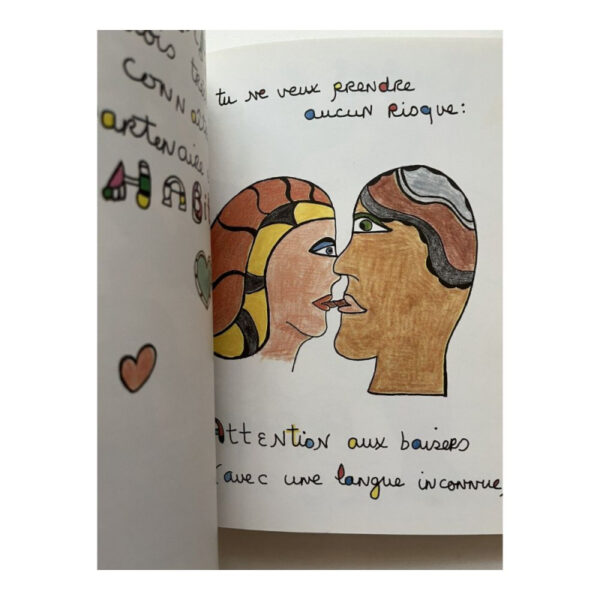 CONN
artenaire
HABi
tu ne veux prendre
aucun risque:
Attention aux baisers
(avec une langue inconnue,